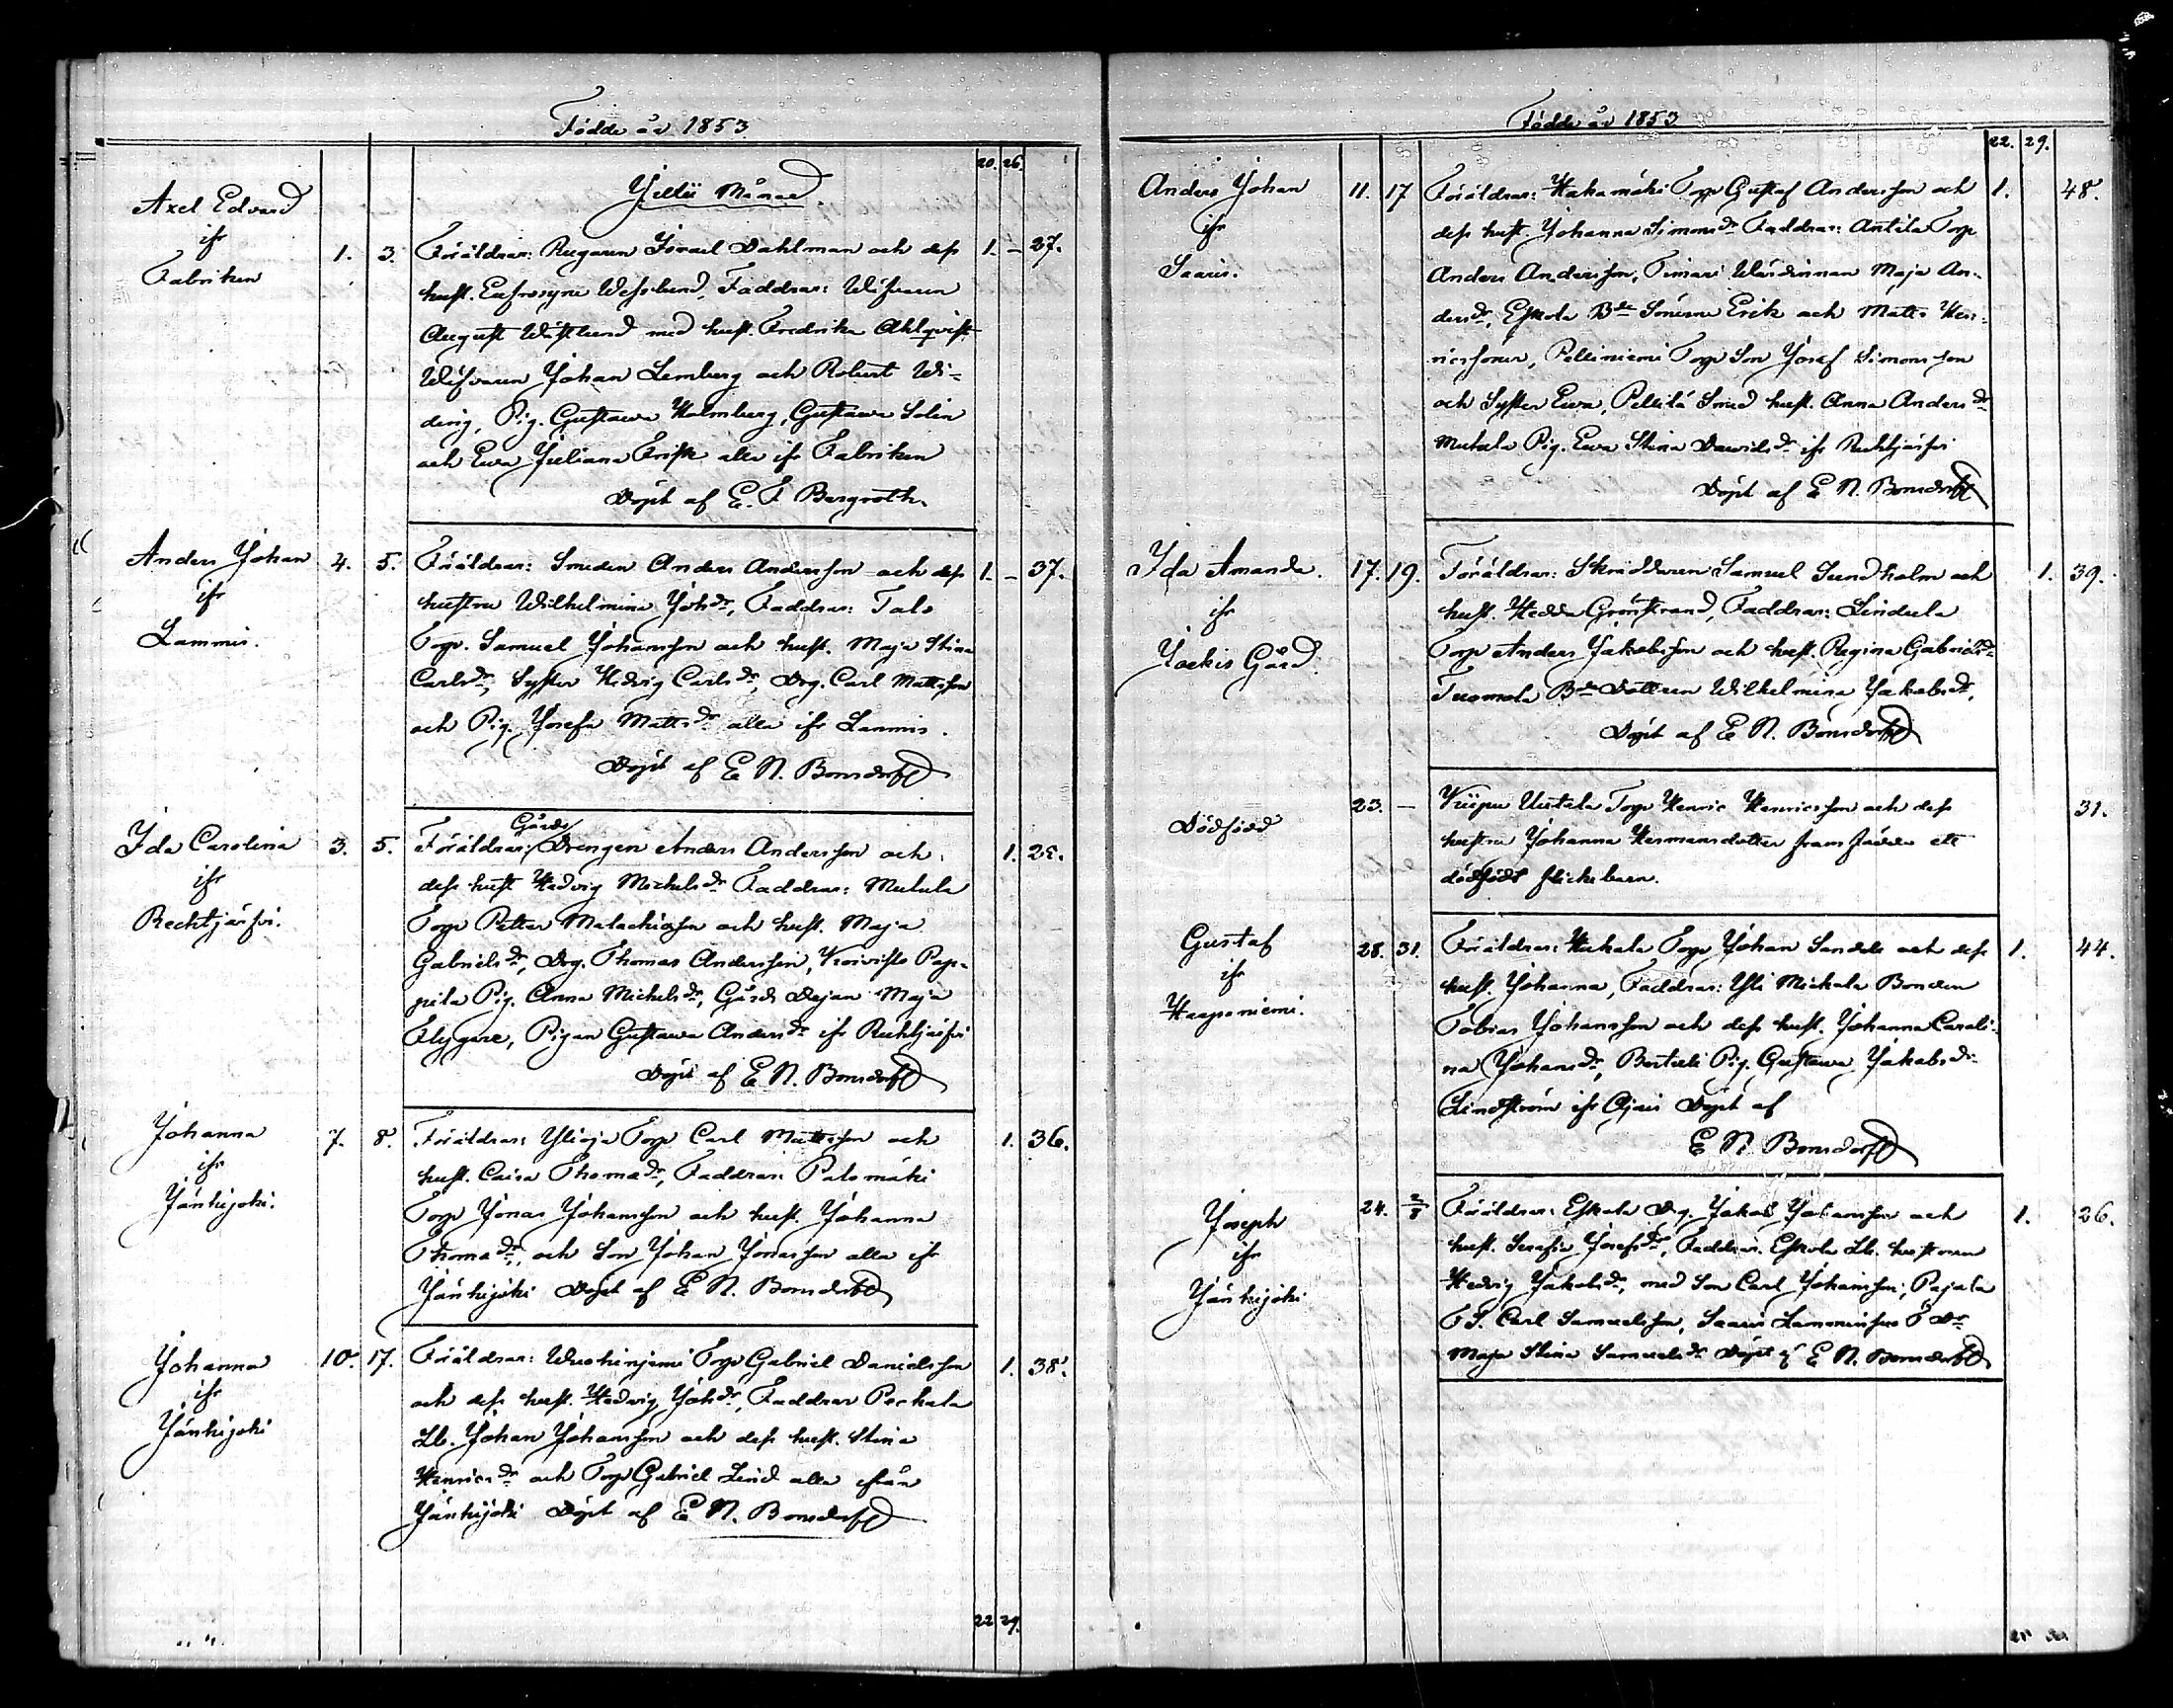 Födde år 1853
20. 26.
Julii Månad
Axel Edvard
ifr
Fabriken
1. 3.
Föräldrar: Israel Dahlman och dess 1. – 27.
hust. Eufrosyne Faddrar: Wäfvaren
August Wästlund med hust. Fredrika Ahlqvist
Wäfvaren Johan Lemberg och Robert Wi-
ding, Pig. Gustava Holmberg, Gustava Solin
och Eva Juliana Frisk alla ifr Fabriken
Döpt af E. F. Bergroth.
Anders Johan
ifr
Lammi.
4. 5.
Föräldrar: Smeden Anders Andersson och dess 1. – 37.
hustru Wilhelmina Johdr, Faddrar: Talo
Torp. Samuel Johansson och hust. Maja Stina
Carlsdr, Syster Hedvig Carlsdr, Drg. Carl Mattsson
och Pig. Josefa Mattsdr alla ifr Lammis.
Döpt af E N. Bonsdorff
Ida Carolina
ifr
Rechtjärfvi.
3. 5.
Föräldrar: Gårds Drengen Anders Andersson och 1. 25.
dess hust Hedvig Michelsdr Faddrar: Mutula
Torp Petter Malachiasson och hust. Maja
Gabrielsdr, Drg. Thomas Andersson, Koivisto Pap-
pila Pig. Anna Michelsdr, Gårds Dejan Maja
Flygare, Pigan Gustava Andersdr ifr Rehtjärfvi
Döpt af E N. Bonsdorff
Johanna
ifr
Jänhijoki.
7. 8.
Föräldrar: Ylioja Torp Carl Mattsson och 1. 36.
hust. Caisa Thomadr, Faddrar: Palomäki
Torp Jonas Johansson och hust. Johanna
Thomadr, och Son Johan Jonasson alla ifr
Jänhijoki Döpt af E N. Bonsdorff
Johanna
ifr
Jänhijoki
10. 17.
Föräldrar: Torp Gabriel Danielsson 1. 38.
och dess hust. Hedvig Johdr, Faddrar Peckala
Lb. Johan Johansson och dess hust. Stina
Henricsdr och Torp Gabriel Lind alla ifrån
Jänhijoki Döpt af E N. Bonsdorff
22 29.
Födde år 1853
22. 29.
Anders Johan
ifr
Saaris.
11. 17
Föräldrar: Hakamäki Torp Gustaf Andersson och 1. 48.
dess hust. Johanna Simonsdr Faddrar: Antila Torp
Anders Andersson, Wärdinnan Maja An-
dersdr, Eskola Bde Sönerna Erik och Matts Hen-
ricssoner, Pelliniemi Torp Son Josef Simonsson
och Syster Eva, Pellilä Smed hust. Anna Andersdr
Mutula Pig. Eva Stina Davidsdr ifr Rehtjärfvi
Döpt af E N. Bonsdorff
Ida Amanda.
ifr
Jockis Gård.
17. 19.
Föräldrar: Skräddaren Samuel Sundholm och 1. 39.
hust. Hedda Grönstrand, Faddrar: Lindula
Torp Anders Jakobsson och hust. Regina Gabrielsdr
Tuomola Bde Dottren Wilhelmina Jakobsdr,
Döpt af E N. Bonsdorff
Dödfödd
23. –
Uutela Torp Henric Henricsson och dess 31.
hustru Johanna Hermansdotter framfödde ett
dödfödt flickebarn.
Gustaf
ifr
Haapaniemi.
28. 31.
Föräldrar: Torp Johan Sandell och dess 1. 44.
hust. Johanna, Faddrar: Yli Mickala Bonden
Tobias Johansson och dess hust. Johanna Caroli-
na Johansdr, Pig. Gustava Jakobsdr
Lindström ifr Döpt af
E N. Bonsdorff
Joseph
ifr
Jänhijoki
24. 2/8
Föräldrar: Eskola Drg. Jakob Johansson och 1. 26.
hust. Serafia Josefsdr, Faddrar. Eskola Lb. hustrun
Hedvig Jakobsdr, med Son Carl Johansson, Pajala
T S. Carl Samuelsson, Saaris T Dr
Maja Stina Samuelsdr Döpt af E N. Bonsdorff